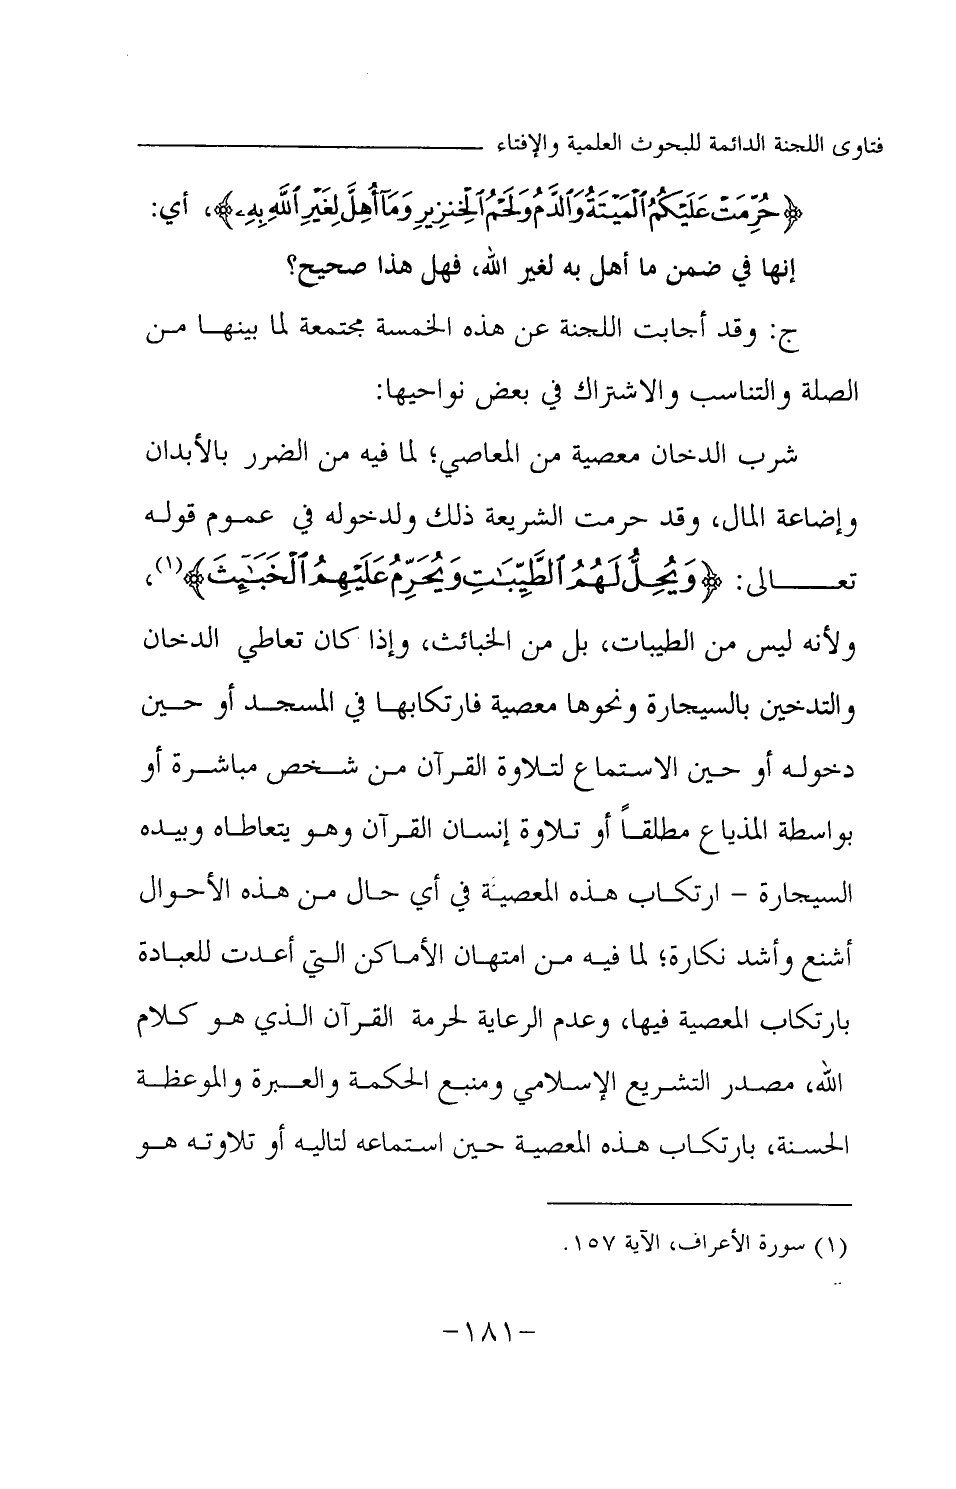 فتاوى اللجنة الدائمة للبحوث العلمية والإفتاء
﴿حُرِّمَتْ عَلَيْكُمُ ٱلْمَيْتَةُ وَٱلدَّمُ وَلَحْمُ ٱلْخِنزِيرِ وَمَآ أُهِلَّ لِغَيْرِ ٱللَّهِ بِهِۦ﴾، أي:
إنها في ضمن ما أهل به لغير الله، فهل هذا صحيح؟
ج: وقد أجابت اللجنة عن هذه الخمسة مجتمعة لما بينهـا مـن
الصلة والتناسب والاشتراك في بعض نواحيها:
شرب الدخان معصية من المعاصي؛ لما فيه من الضرر بالأبدان
وإضاعة المال، وقد حرمت الشريعة ذلك ولدخوله في عمـوم قولـه
تعـــــالى: ﴿وَيُحِلُّ لَهُمُ ٱلطَّيِّبَٰتِ وَيُحَرِّمُ عَلَيْهِمُ ٱلْخَبَٰٓئِثَ﴾(١)،
ولأنه ليس من الطيبات، بل من الخبائث، وإذا كان تعاطي الدخان
والتدخين بالسيجارة ونحوها معصية فارتكابهـا في المسجـد أو حـين
دخولـه أو حـين الاسـتماع لتـلاوة القـرآن مـن شـخص مباشـرة أو
بواسطة المذياع مطلقـاً أو تـلاوة إنسـان القـرآن وهـو يتعاطـاه وبيـده
السيجارة – ارتكـاب هـذه المعصيـة في أي حـال مـن هـذه الأحـوال
أشنع وأشد نكارة؛ لما فيـه مـن امتهان الأمـاكن الـتي أعـدت للعبـادة
بارتكاب المعصية فيها، وعدم الرعاية لحرمة القـرآن الـذي هـو كـلام
الله، مصـدر التشـريع الإسـلامي ومنبـع الحكمـة والعـبرة والموعظـة
الحسـنة، بارتكـاب هـذه المعصيـة حـين استماعه لتاليـه أو تلاوتـه هـو
(١) سورة الأعراف، الآية ١٥٧.
-١٨١-